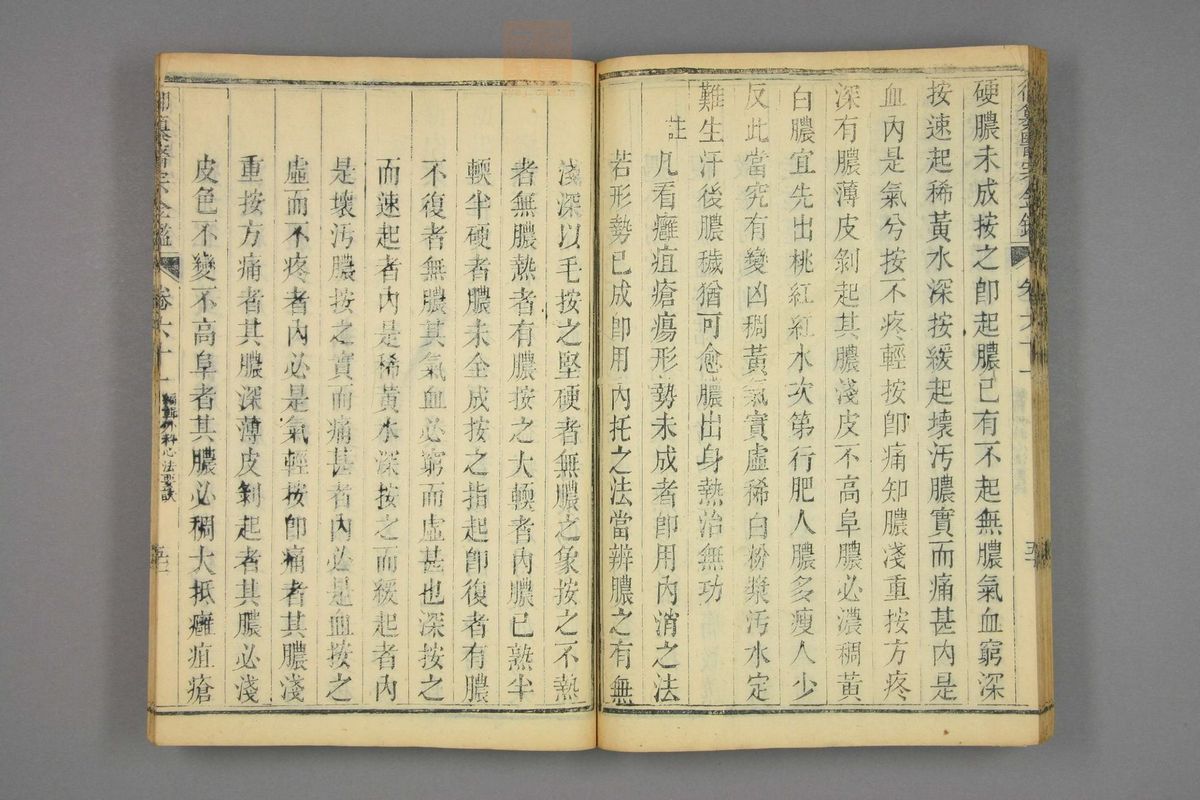 硬膿未成按之卽起膿已有不起無膿氣血窮深
按速起稀黃水深按緩起壞汚膿實而痛甚內是
血內是氣兮按不疼輕按卽痛知膿淺重按方疼
深有膿薄皮剝起其膿淺皮不高阜膿必濃稠黃
白膿宜先出桃紅紅水次第行肥人膿多瘦人少
反此當究有變凶稠黃氣實虛稀白粉漿汚水定
難生汗後膿穢猶可愈膿出身熱治無功
註
凡看癰疽瘡瘍形勢未成者卽用內消之法
若形勢已成卽用內托之法當辨膿之有無
淺深以毛按之堅硬者無膿之象按之不熱
者無膿熱者有膿按之大輭者內膿已熟半
輭半硬者膿未全成按之指起卽復者有膿
不復者無膿其氣血必窮而虛甚也深按之
而速起者內是稀黃水深按之而緩起者內
是壞汚膿按之實而痛甚者內必是血按之
虛而不疼者內必是氣輕按卽痛者其膿淺
重按方痛者其膿深薄皮剝起者其膿必淺
皮色不變不高阜者其膿必稠大抵癰疽瘡
御纂醫宗金鑑 卷六十一 編輯外科心法要訣